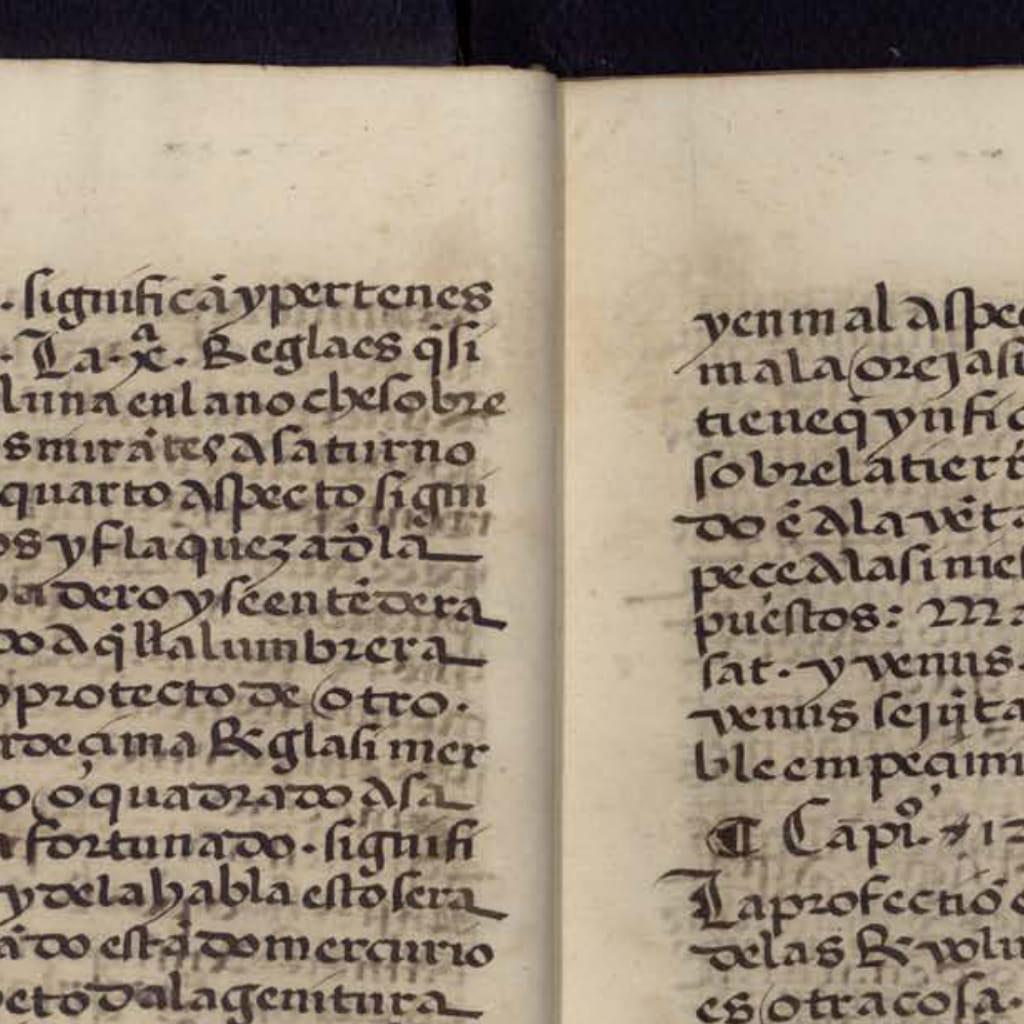 . significā y pertenes
. La .xᵃ. Regla es q̄ si
luna en la noche sobre
s mirātes A saturno
quarto Aspecto signi
os y flaqueza ðla
dero y se entēdera
do A q̄lla lumbrera
protecto de otro.
decima Regla si mer
o o quadrado A sa
fortunado. signifi
y de la habla esto sera
ādo estādo mercurio
eto de la genitura
y en mal Aspec
mala oreja si
tiene q̄
sobre la tierr
do ē A la vēta
peçe A la sinies
puestos: Ma
sat. y venus.
venus se jūta
ble empeçim
¶ Capi.º
La profectiō
de las Revolu
es otra cosa.